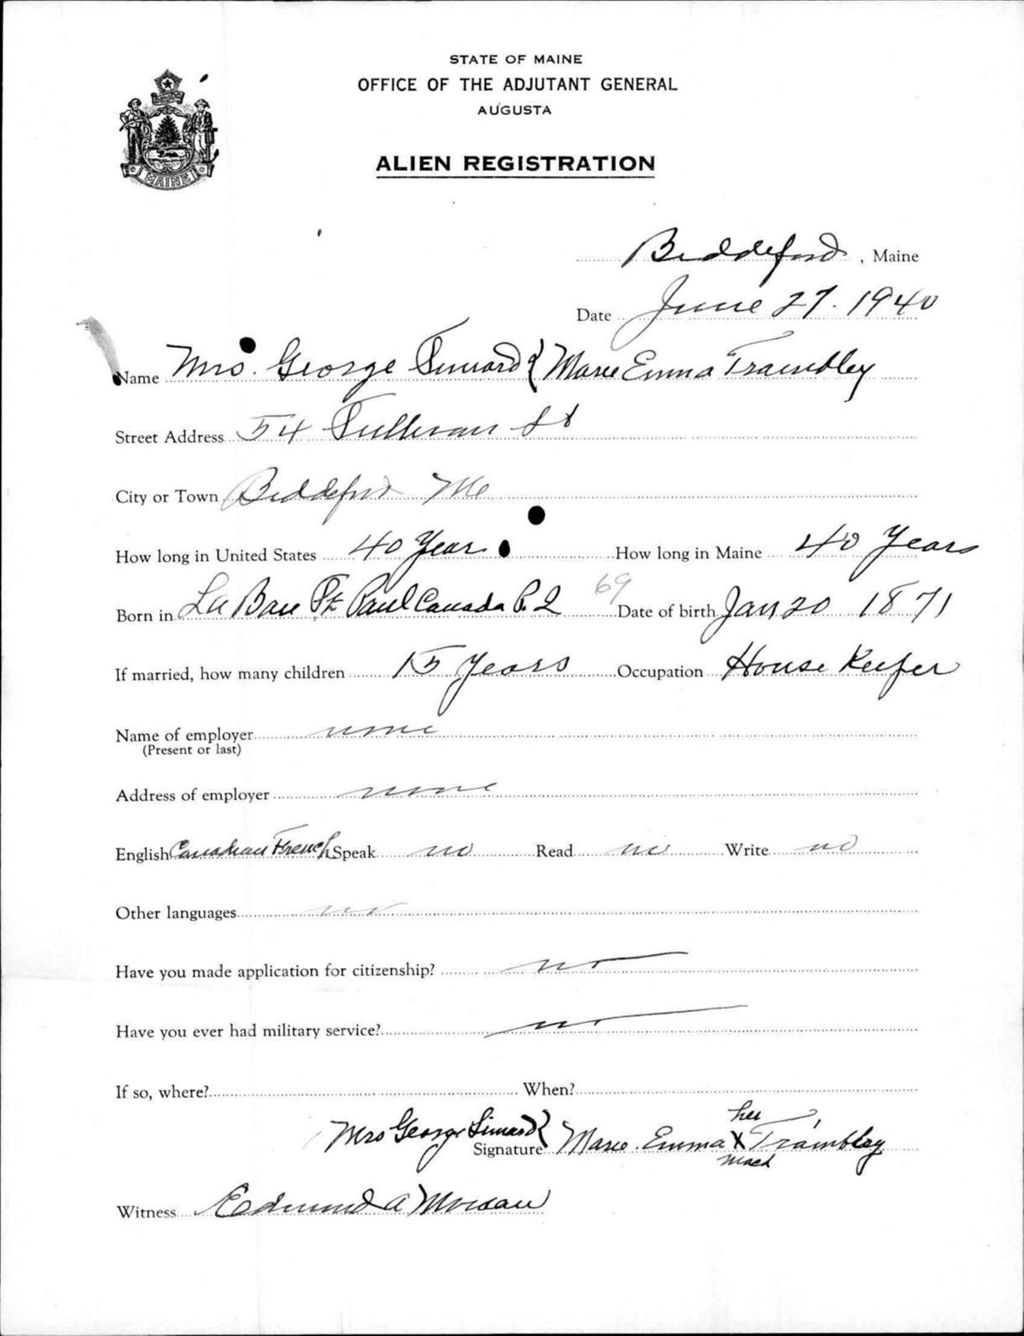 STATE OF MAINE
OFFICE OF THE ADJUTANT GENERAL
AUGUSTA
ALIEN REGISTRATION
MAINE
Biddeford, Maine
Date June 27. 1940
Name Mrs. George Simard { Marie Emma Trambley
Street Address 54 Sullivan St
City or Town Biddeford Me
How long in United States 40 Years How long in Maine 40 Years
Born in La Baie St Paul Canada P. Q 69 Date of birth Jan 20 1871
If married, how many children 15 Years Occupation House Keefer
Name of employer none
(Present or last)
Address of employer none
English Canadian French Speak no Read no Write no
Other languages no
Have you made application for citizenship? no
Have you ever had military service? no
If so, where? When?
her
Mrs George Simard { Signature Marie Emma X Trambley
mark
Witness Edmund A